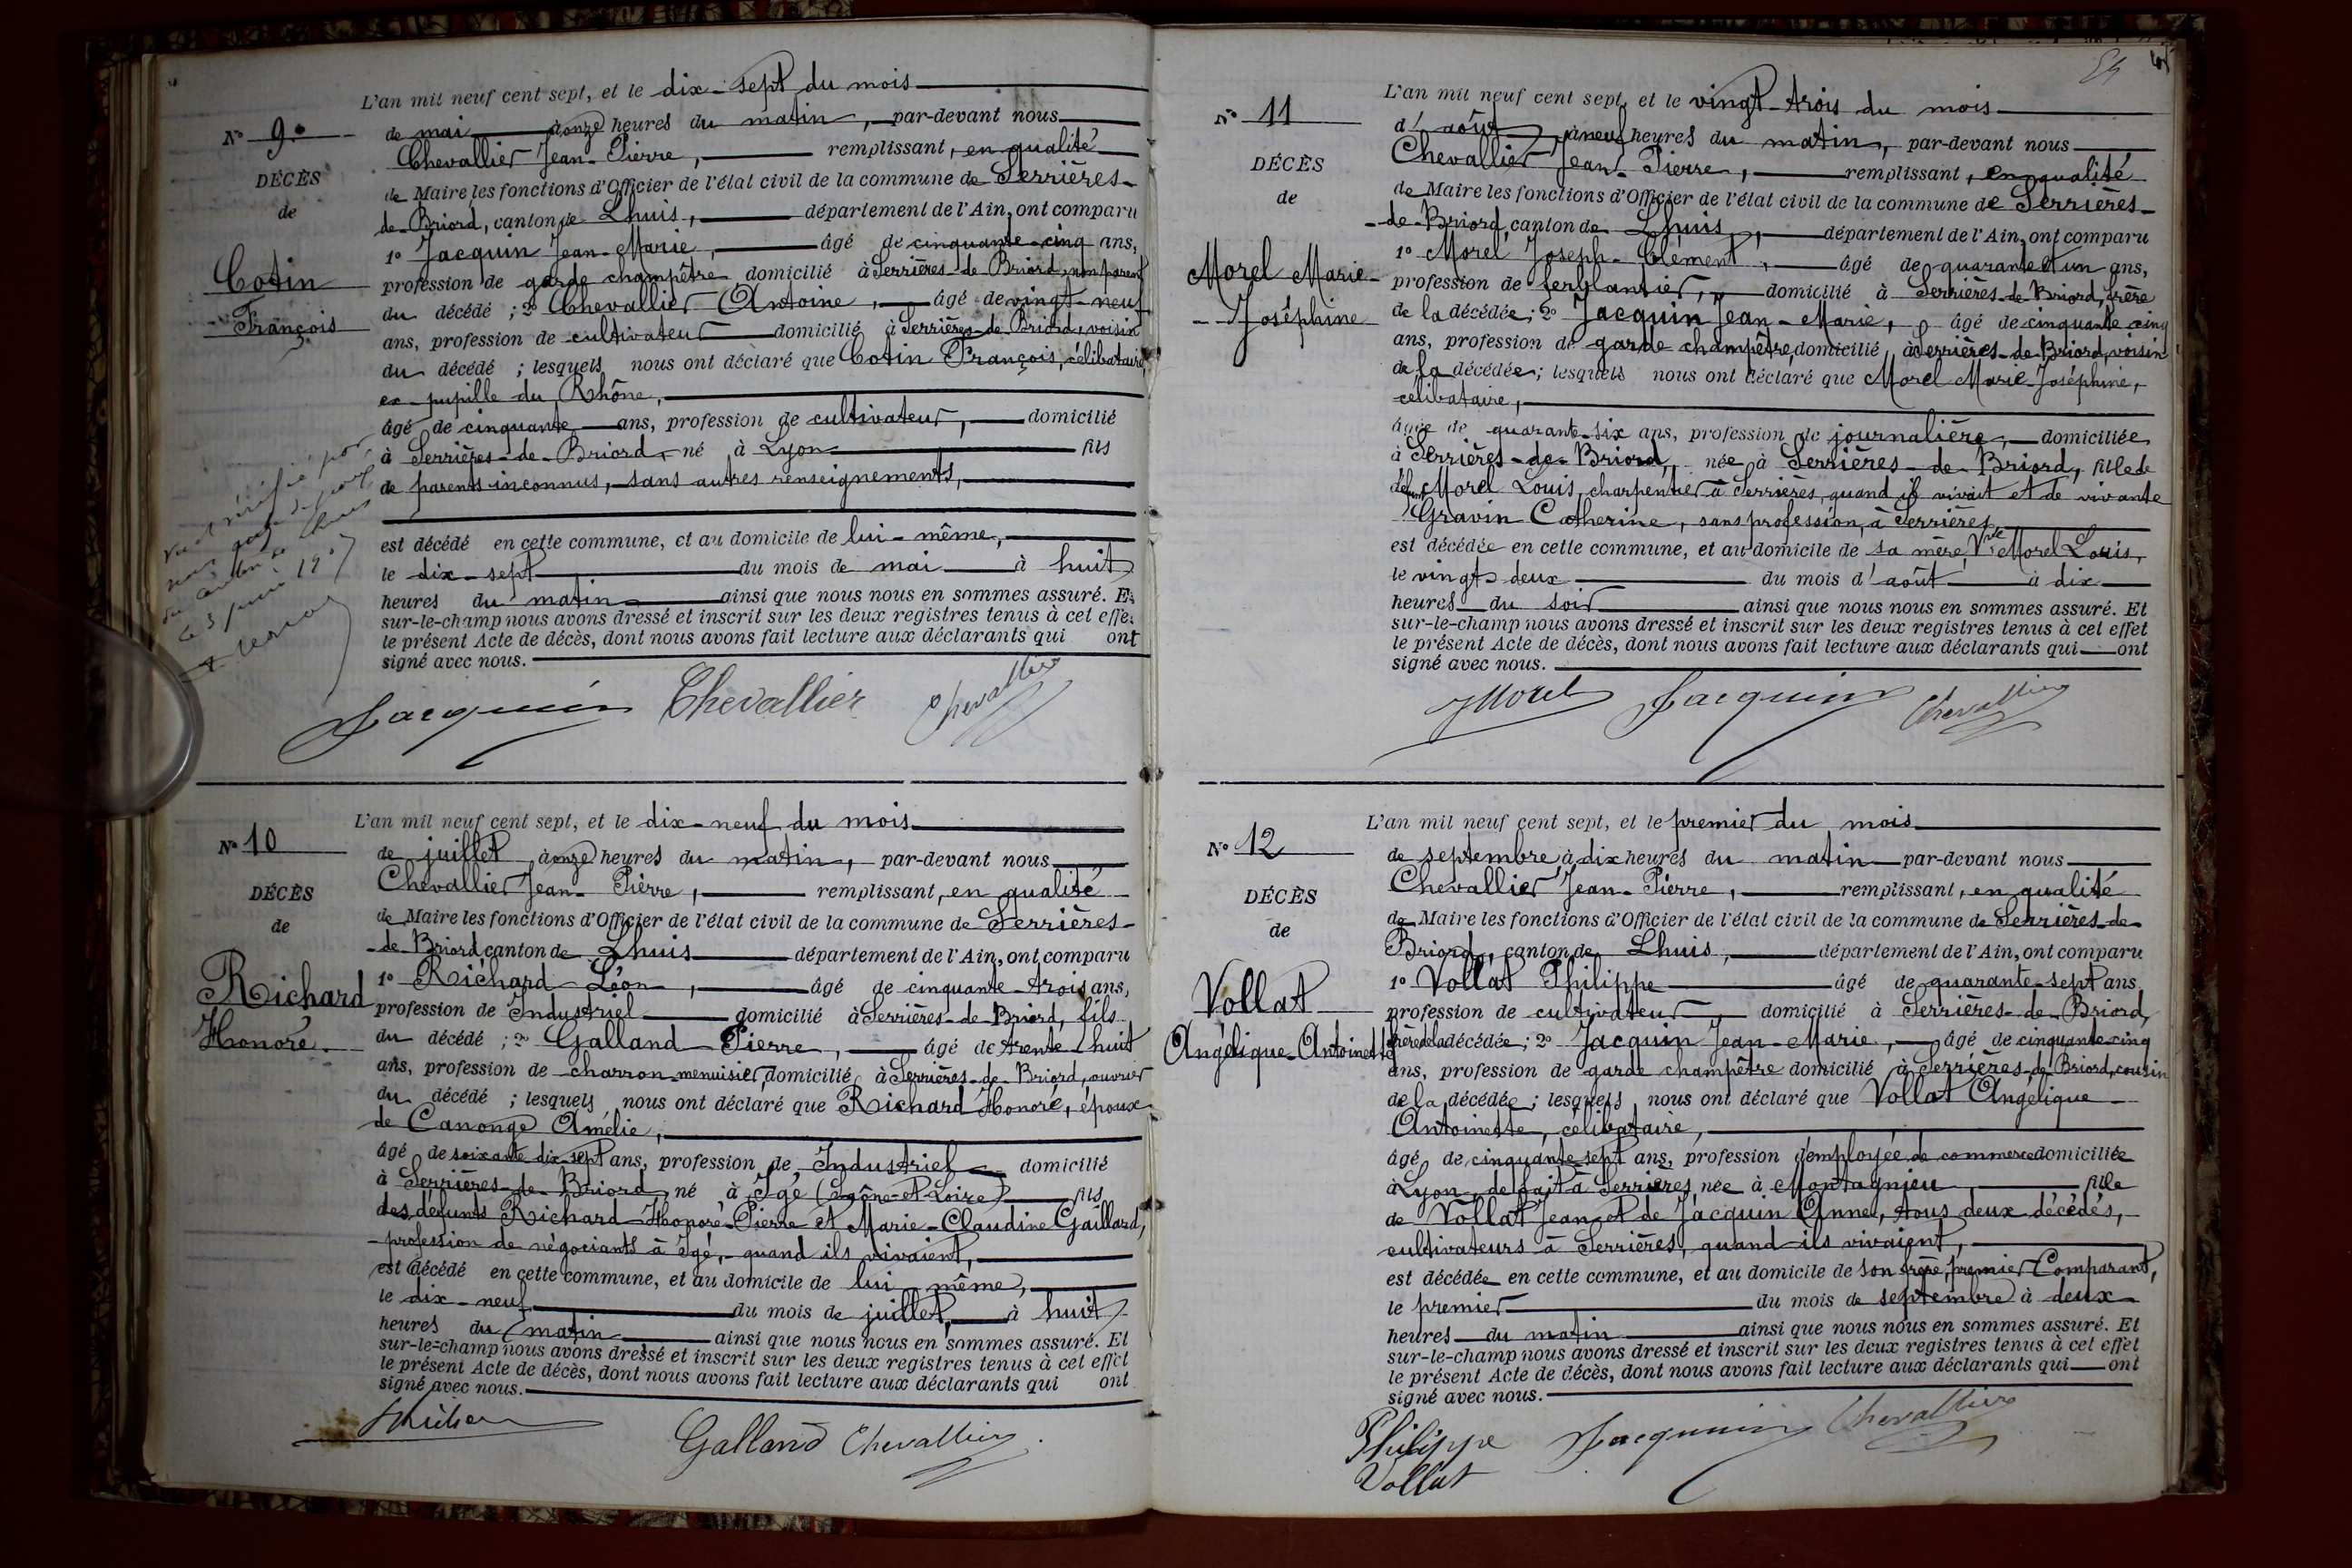 L'an mil neuf cent sept, et le dix-sept du mois
No 9.
de mai à onze heures du matin, par-devant nous
Chevallier Jean-Pierre, remplissant, en qualité
DÉCÈS
de Maire les fonctions d'Officier de l'état civil de la commune de Serrières-
de
de-Briord, canton de Lhuis, département de l'Ain, ont comparu
1o Jacquin Jean-Marie, âgé de cinquante-cinq ans,
Cotin
profession de garde champêtre domicilié à Serrières-de-Briord, non parent
François
du décédé ; 2o Chevallier Antoine, âgé de vingt-neuf
ans, profession de cultivateur domicilié à Serrières-de-Briord, voisin
du décédé ; lesquels nous ont déclaré que Cotin François, célibataire,
ex-pupille du Rhône,
âgé de cinquante ans, profession de cultivateur, domicilié
à Serrières-de-Briord, né à Lyon fils
de parents inconnus, sans autres renseignements,
est décédé en cette commune, et au domicile de lui-même,
le dix-sept du mois de mai à huit
heures du matin ainsi que nous nous en sommes assuré. Et
sur-le-champ nous avons dressé et inscrit sur les deux registres tenus à cet effet
le présent Acte de décès, dont nous avons fait lecture aux déclarants qui ont
signé avec nous.
Vu et vérifié par
nous juge de paix
du canton de Lhuis
le 3 juin 1907
Jacquin Chevallier Chevallier
L'an mil neuf cent sept, et le dix-neuf du mois
No 10
de juillet à onze heures du matin, par-devant nous
Chevallier Jean-Pierre, remplissant, en qualité
DÉCÈS
de Maire les fonctions d'Officier de l'état civil de la commune de Serrières-
de
-de-Briord canton de Lhuis département de l'Ain, ont comparu
1o Richard Léon, âgé de cinquante-trois ans,
Richard
profession de Industriel domicilié à Serrières-de-Briord, fils
Honoré.
du décédé ; 2o Galland Pierre, âgé de trente-huit
ans, profession de charron-menuisier, domicilié à Serrières-de-Briord, ouvrier
du décédé ; lesquels nous ont déclaré que Richard Honoré, époux
de Canonge Amélie,
âgé de soixante dix-sept ans, profession de Industriel domicilié
à Serrières-de-Briord, né à Igé (Saône-et-Loire) fils
des défunts Richard Honoré-Pierre et Marie-Claudine Gaillard,
-profession de négociants à Igé, quand ils vivaient,
est décédé en cette commune, et au domicile de lui même,
le dix-neuf du mois de juillet, à huit
heures du matin ainsi que nous nous en sommes assuré. Et
sur-le-champ nous avons dressé et inscrit sur les deux registres tenus à cet effet
le présent Acte de décès, dont nous avons fait lecture aux déclarants qui ont
signé avec nous.
Galland Chevallier
L'an mil neuf cent sept, et le vingt-trois du mois
No 11
d'août à neuf heures du matin, par-devant nous
Chevallier Jean-Pierre, remplissant, en qualité
DÉCÈS
de Maire les fonctions d'Officier de l'état civil de la commune de Serrières-
de
-de-Briord, canton de Lhuis, département de l'Ain, ont comparu
1o Morel Joseph-Clément, âgé de quarante et un ans,
Morel Marie-
profession de ferblantier, domicilié à Serrières-de-Briord, frère
Joséphine
de la décédée ; 2o Jacquin Jean-Marie, âgé de cinquante cinq
ans, profession de garde champêtre, domicilié à Serrières-de-Briord, voisin
de la décédée ; lesquels nous ont déclaré que Morel Marie-Joséphine,
célibataire,
âgée de quarante-six ans, profession de journalière, domiciliée
à Serrières-de-Briord, née à Serrières-de-Briord, fille de
défunt Morel Louis, charpentier à Serrières, quand il vivait et de vivante
Gravin Catherine, sans profession, à Serrières,
est décédée en cette commune, et au domicile de sa mère, Vve Morel Louis,
le vingt-deux du mois d'août à dix
heures du soir ainsi que nous nous en sommes assuré. Et
sur-le-champ nous avons dressé et inscrit sur les deux registres tenus à cet effet
le présent Acte de décès, dont nous avons fait lecture aux déclarants qui ont
signé avec nous.
Morel Jacquin Chevallier
L'an mil neuf cent sept, et le premier du mois
No 12
de septembre à dix heures du matin par-devant nous
Chevallier Jean-Pierre, remplissant, en qualité
DÉCÈS
de Maire les fonctions d'Officier de l'état civil de la commune de Serrières-de-
de
Briord, canton de Lhuis, département de l'Ain, ont comparu
1o Vollat Philippe âgé de quarante-sept ans
Vollat
profession de cultivateur, domicilié à Serrières-de-Briord,
Angélique-Antoinette
frère de la décédée ; 2o Jacquin Jean-Marie, âgé de cinquante cinq
ans, profession de garde champêtre domicilié à Serrières-de-Briord, cousin
de la décédée ; lesquels nous ont déclaré que Vollat Angélique-
Antoinette, célibataire,
âgé de cinquante sept ans, profession d'employée de commerce domiciliée
à Lyon, de fait à Serrières née à Montagnieu fille
de Vollat Jean et de Jacquin Anne, tous deux décédés,
cultivateurs à Serrières, quand ils vivaient,
est décédée en cette commune, et au domicile de son frère, premier Comparant,
le premier du mois de septembre à deux
heures du matin ainsi que nous nous en sommes assuré. Et
sur-le-champ nous avons dressé et inscrit sur les deux registres tenus à cet effet
le présent Acte de décès, dont nous avons fait lecture aux déclarants qui ont
signé avec nous.
Philippe Jacquin Chevallier
Vollat